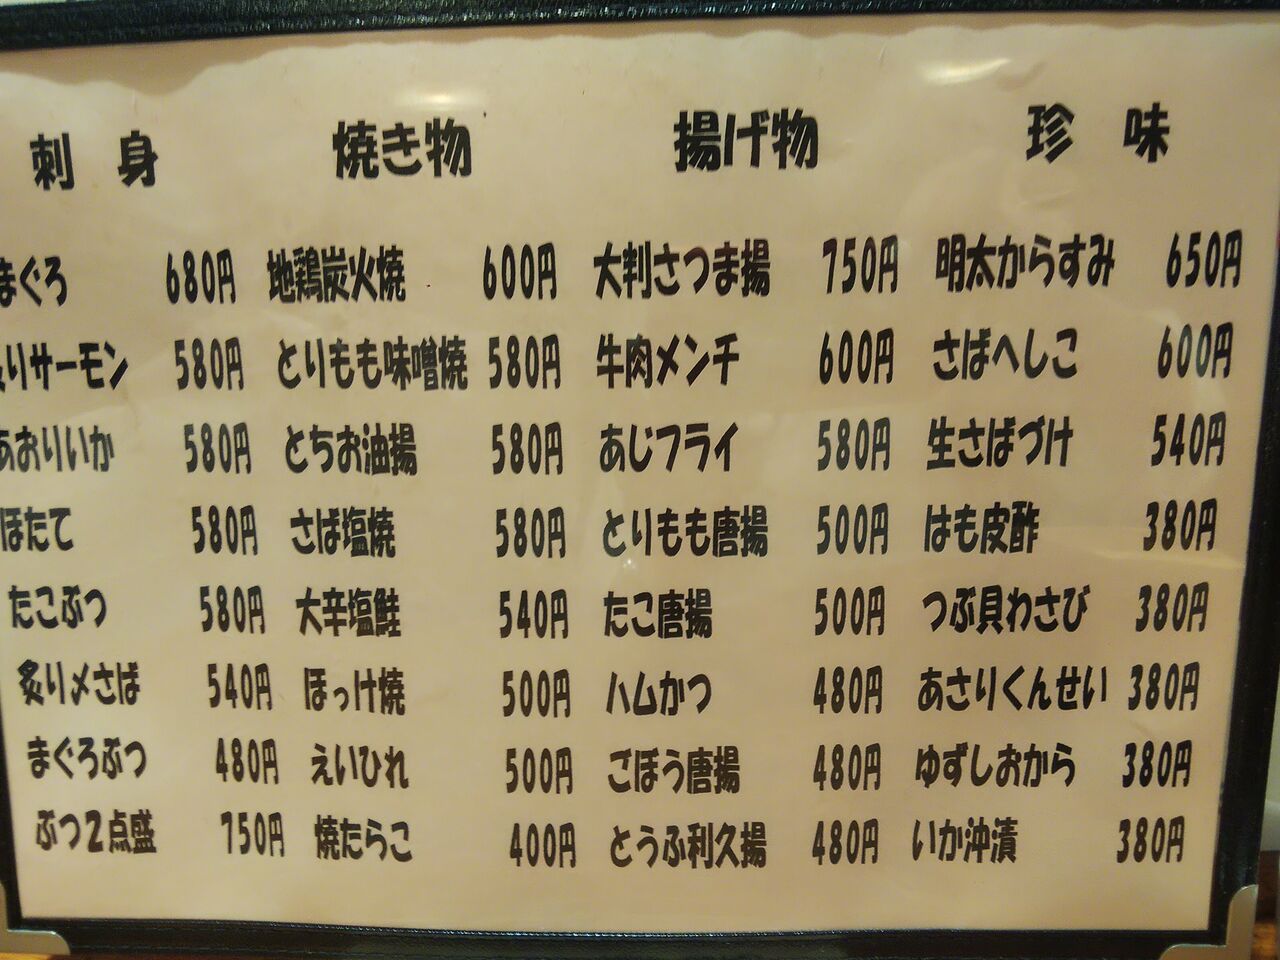 刺身 焼き物 揚げ物 珍味
まぐろ 680円 地鶏炭火焼 600円 大判さつま揚 750円 明太からすみ 650円
りサーモン 580円 とりもも味噌焼 580円 牛肉メンチ 600円 さばへしこ 600円
あおりいか 580円 とちお油揚 580円 あじフライ 580円 生さばづけ 540円
ほたて 580円 さば塩焼 580円 とりもも唐揚 500円 はも皮酢 380円
たこぶつ 580円 大辛塩鮭 540円 たこ唐揚 500円 つぶ貝わさび 380円
炙り〆さば 540円 ほっけ焼 500円 ハムかつ 480円 あさりくんせい 380円
まぐろぶつ 480円 えいひれ 500円 ごぼう唐揚 480円 ゆずしおから 380円
ぶつ2点盛 750円 焼たらこ 400円 とうふ利久揚 480円 いか沖漬 380円